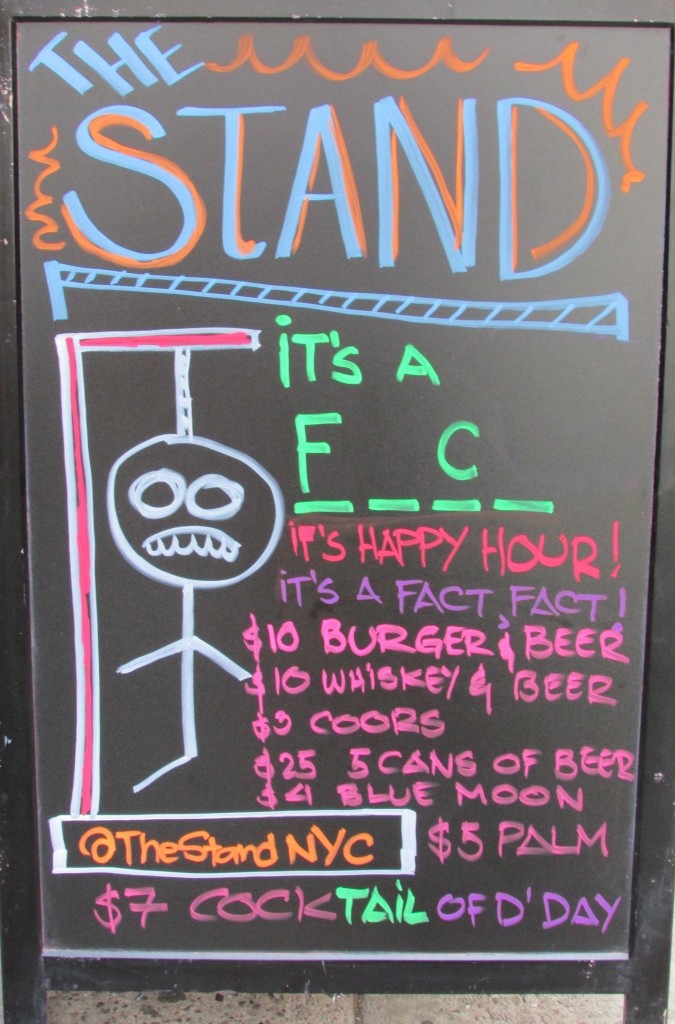 THE
STAND
iT'S A
F _ C _
iT'S HAPPY HOUR!
iT'S A FACT, FACT!
$10 BURGER & BEER
$10 WHiSKEY & BEER
$3 COORS
$25 5 CANS OF BEER
$4 BLUE MOON
@TheStand NYC
$5 PALM
$7 COCKTAiL OF D'DAY